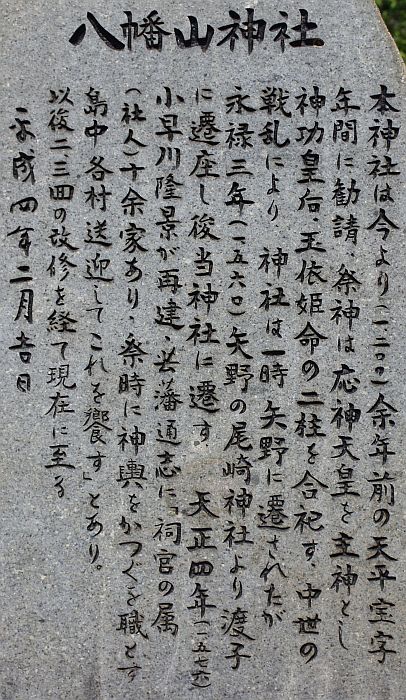 八幡山神社
本神社は今より(一二〇〇)余年前の天平宝字
年間に勧請、祭神は応神天皇を主神とし
神功皇后、玉依姫命の二柱を合祀す、中世の
戦乱により 神社は一時矢野に遷されたが
永禄三年(一五六〇)矢野の尾崎神社より渡子
に遷座し後当神社に遷す 天正四年(一五七六)
小早川隆景が再建、芸藩通志に「祠官の属
(社人)十余家あり、祭時に神輿をかつぐを職とす
島中各村送迎してこれを饗す」とあり。
以後二三回の改修を経て現在に至る
平成四年二月吉日